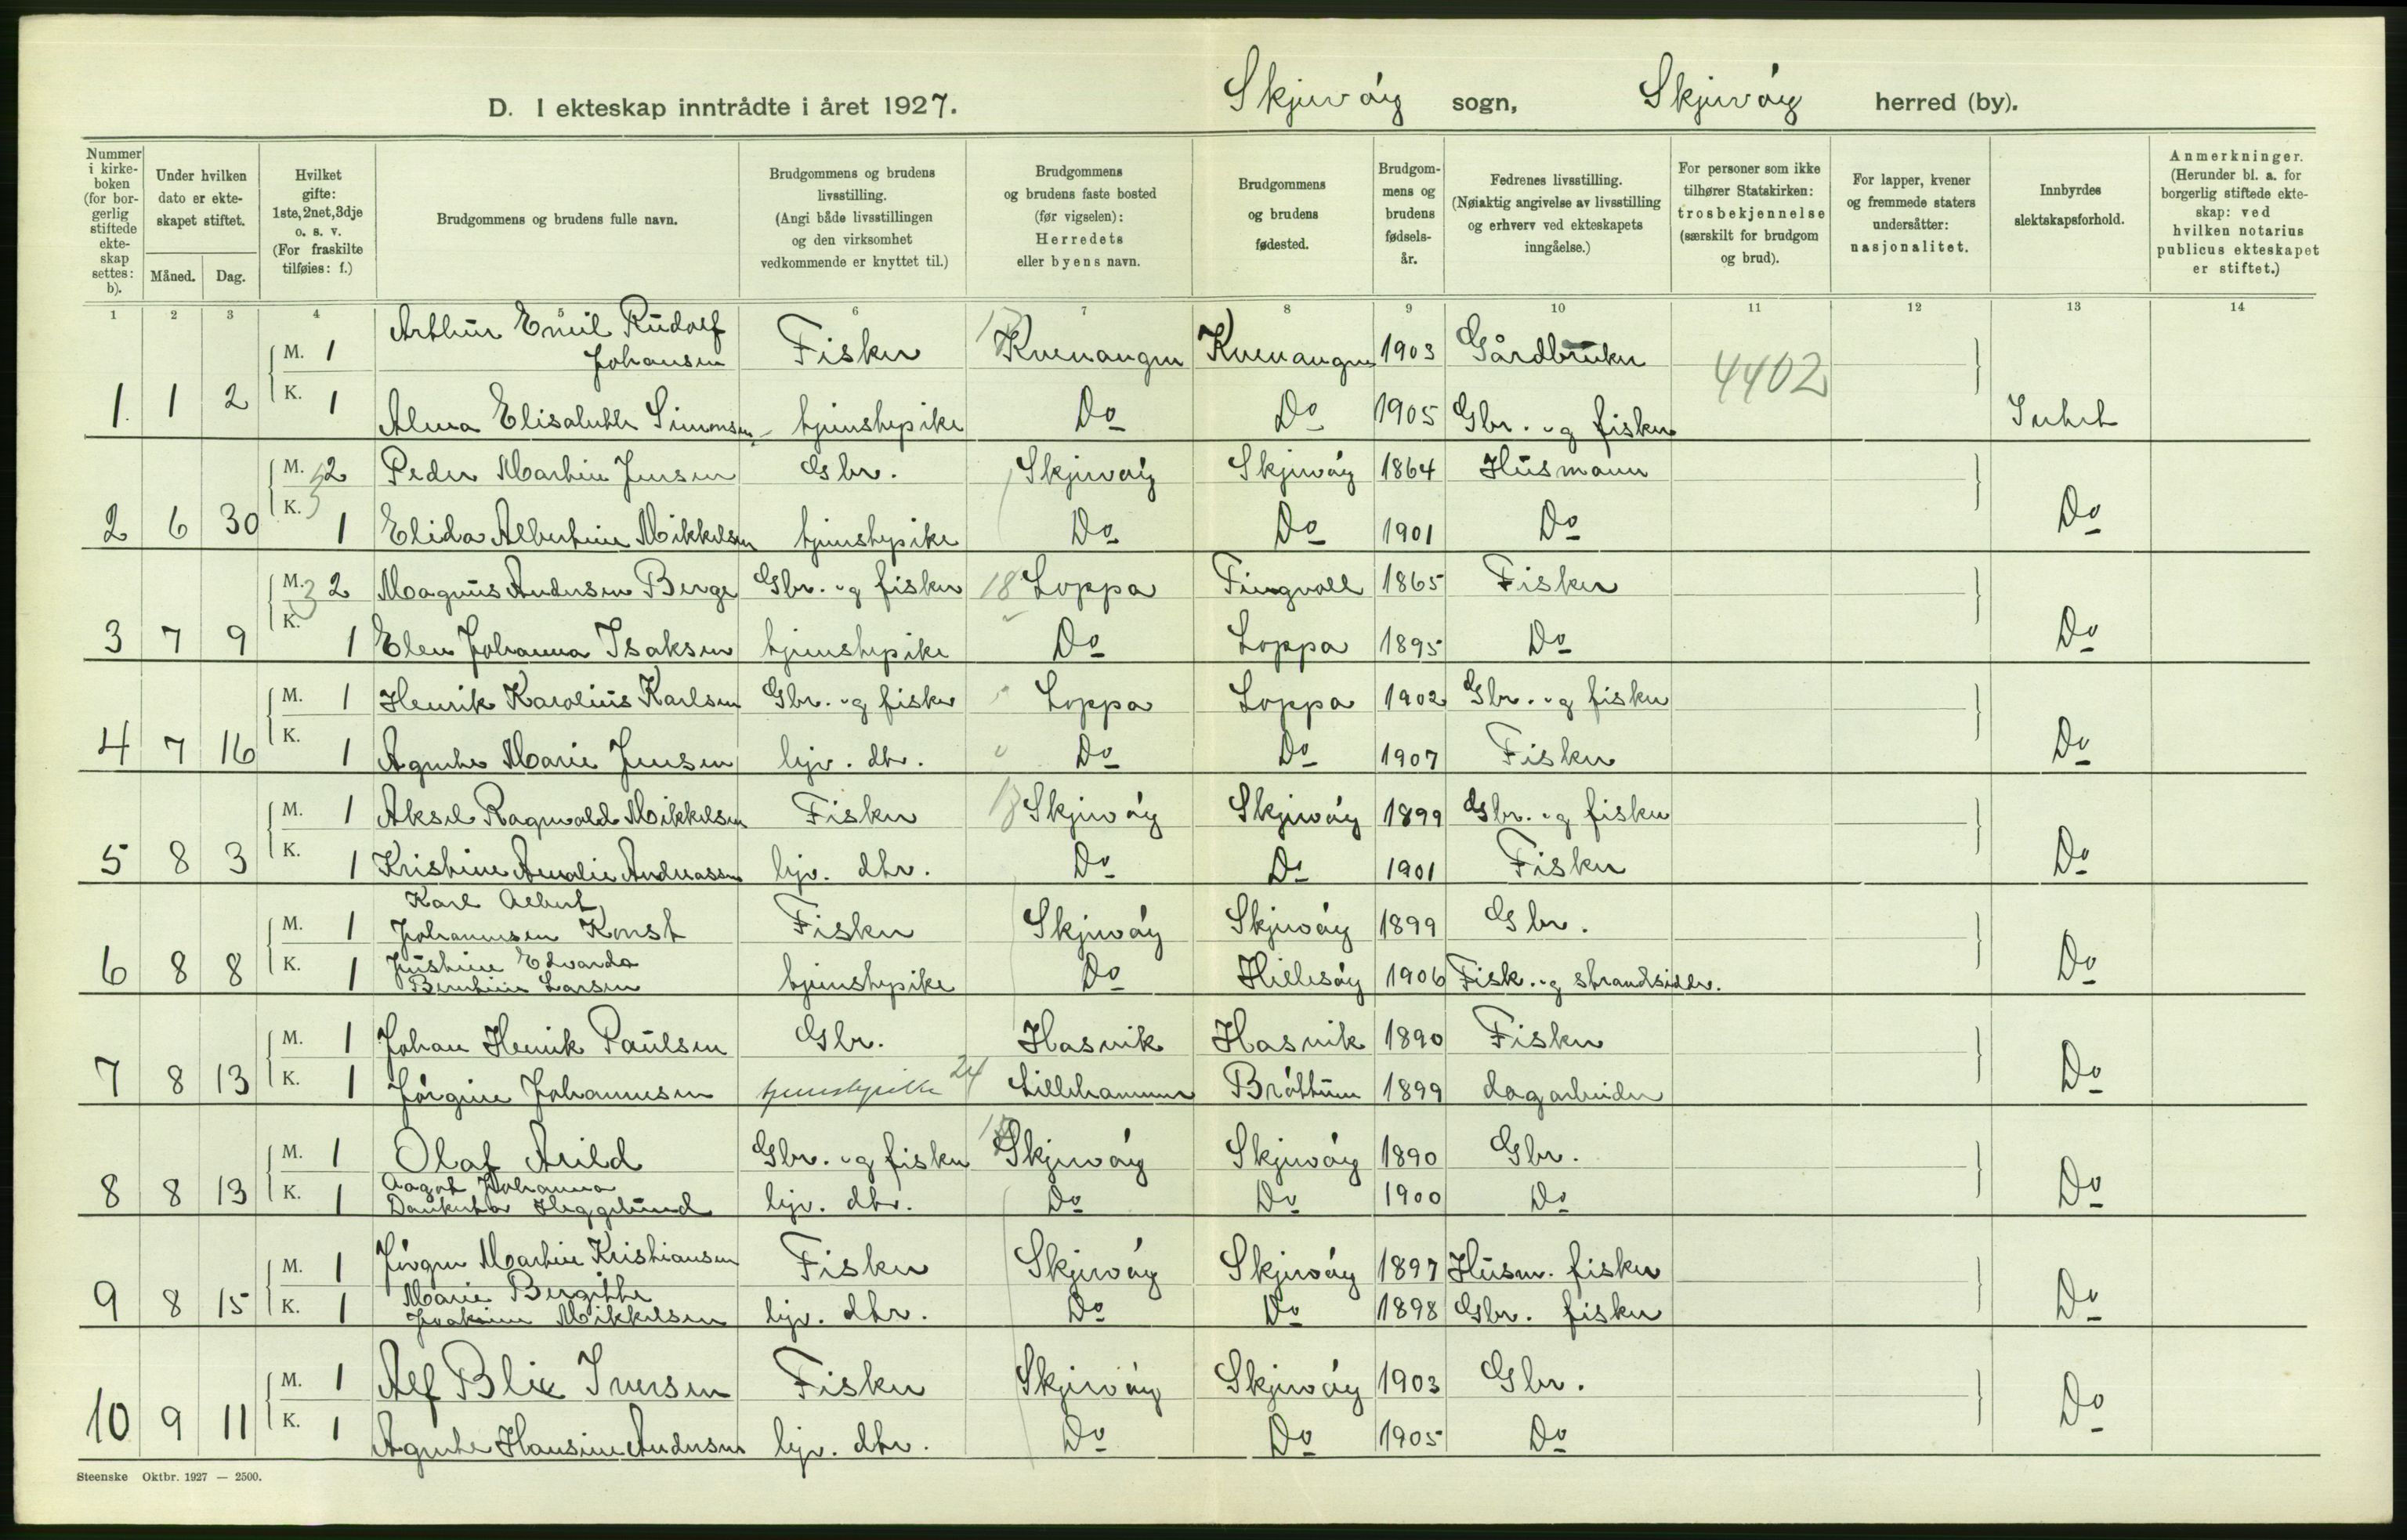 D. I ekteskap inntrådte i året 1927. Skjervøy sogn, Skjervøy herred (by).
Nummer i kirkeboken (for borgerlig stiftede ekteskap settes: b).
Under hvilken dato er ekteskapet stiftet.
Måned. Dag.
Hvilket gifte: 1ste, 2net, 3dje o. s. v. (For fraskilte tilføies: f.)
Brudgommens og brudens fulle navn.
Brudgommens og brudens livsstilling. (Angi både livsstillingen og den virksomhet vedkommende er knyttet til.)
Brudgommens og brudens faste bosted (før vigselen): Herredets eller byens navn.
Brudgommens og brudens fødested.
Brudgommens og brudens fødselsår.
Fedrenes livsstilling. (Nøiaktig angivelse av livsstilling og erhverv ved ekteskapets inngåelse.)
For personer som ikke tilhører Statskirken: trosbekjennelse (særskilt for brudgom og brud).
For lapper, kvener og fremmede staters undersåtter: nasjonalitet.
Innbyrdes slektskapsforhold.
Anmerkninger. (Herunder bl. a. for borgerlig stiftede ekteskap: ved hvilken notarius publicus ekteskapet er stiftet.)
1 2 3 4 5 6 7 8 9 10 11 12 13 14
M. 1 Arthur Emil Rudolf Johansen Fisker Kvenangen Kvenangen 1903 Gårdbruker 4402
1. 1 2 K. 1 Alma Elisabeth Simonsen tjenestepike Do Do 1905 Gbr. og fisker Intet
M. 2 Peder Martin Jensen Gbr. Skjervøy Skjervøy 1864 Husmann
2 6 30 K. 1 Elida Albertine Mikkelsen tjenestepike Do Do 1901 Do Do
M. 2 Magnus Andersen Berge Gbr. og fisker 18 Loppa Tingvoll 1865 Fisker
3 7 9 K. 1 Elen Johanna Isaksen tjenestepike Do Loppa 1895 Do Do
M. 1 Henrik Karolius Karlsen Gbr. og fisker Loppa Loppa 1902 Gbr. og fisker
4 7 16 K. 1 Agnethe Marie Jensen hjv. dtr. Do Do 1907 Fisker Do
M. 1 Aksel Ragnvald Mikkelsen Fisker Skjervøy Skjervøy 1899 Gbr. og fisker
5 8 3 K. 1 Kristine Amalie Andreassen hjv. dtr. Do Do 1901 Fisker Do
M. 1 Karl Albert Johannesen Konst Fisker Skjervøy Skjervøy 1899 Gbr.
6 8 8 K. 1 Justine Edvarda Berntine Larsen tjenestepike Do Hillesøy 1906 Fisk. og strandsidder. Do
M. 1 Johan Henrik Paulsen Gbr. Hasvik Hasvik 1890 Fisker
7 8 13 K. 1 Jørgine Johannesen tjenestepike 24 Lillehammer Brøttum 1899 dagarbeider Do
M. 1 Olaf Arild Gbr. og fisker Skjervøy Skjervøy 1890 Gbr.
8 8 13 K. 1 Aagot Johanna Heggelund hjv. dtr. Do Do 1900 Do Do
M. 1 Jørgen Martin Kristiansen Fisker Skjervøy Skjervøy 1897 Husm. fisker
9 8 15 K. 1 Marie Bergitte Joakime Mikkelsen hjv. dtr. Do Do 1898 Gbr. fisker Do
M. 1 Alf Blix Iversen Fisker Skjervøy Skjervøy 1903 Gbr.
10 9 11 K. 1 Agnethe Hansine Andersen hjv. dtr. Do Do 1905 Do Do
Steenske Oktbr. 1927 — 2500.